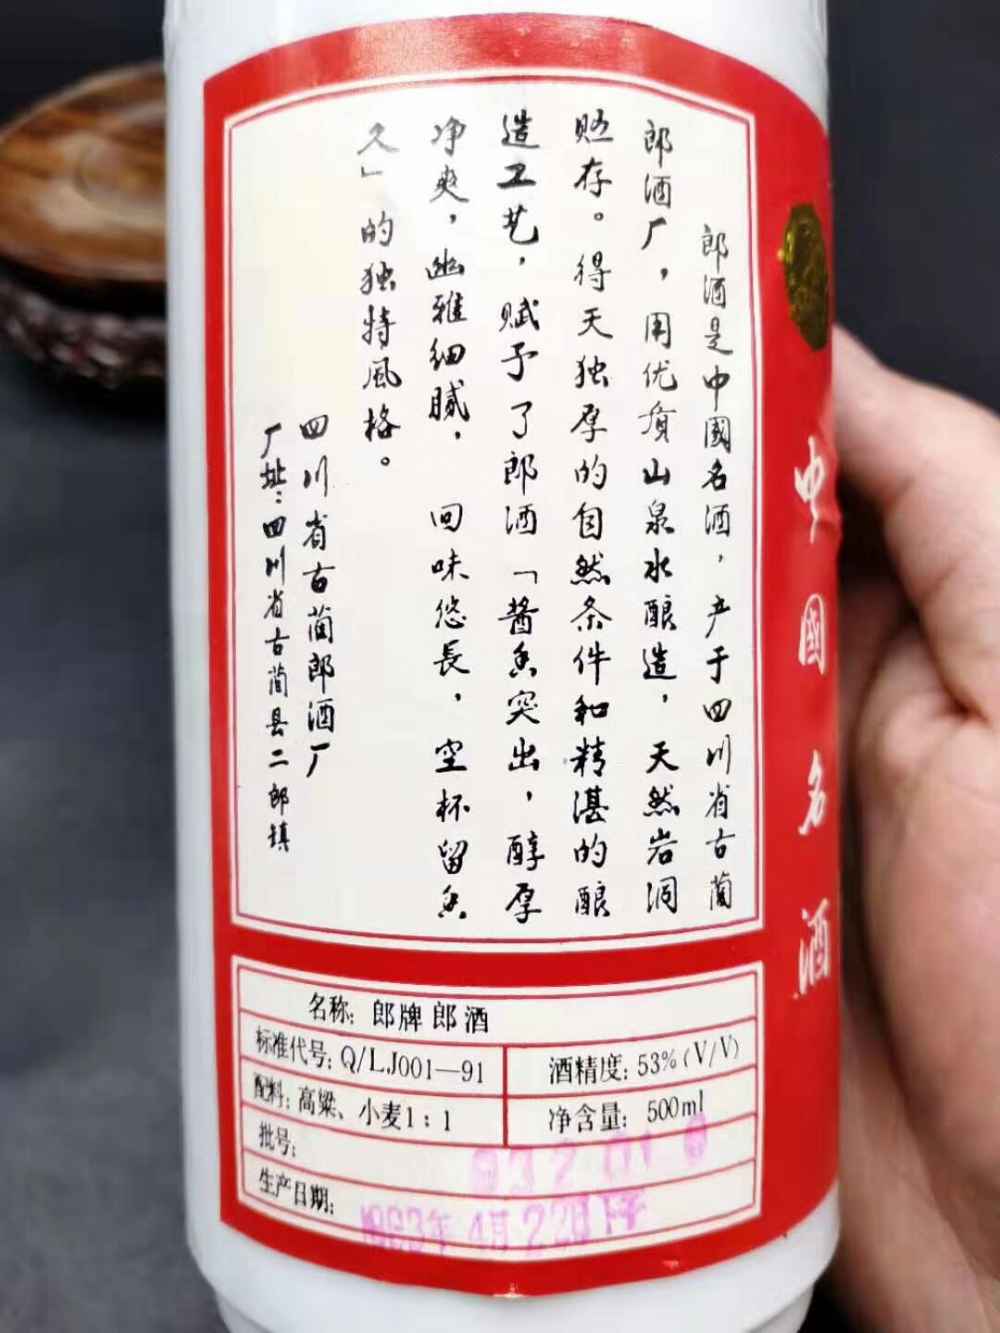 郎酒是中國名酒，产于四川省古蔺
郎酒厂，用优质山泉水酿造，天然岩洞
贮存。得天独厚的自然条件和精湛的酿
造工艺，赋予了郎酒「酱香突出，醇厚
净爽，幽雅细腻，回味悠長，空杯留香
久」的独特風格。
四川省古蔺郎酒厂
厂址：四川省古蔺县二郎镇
中國名酒
名称：郎牌郎酒
标准代号：Q/LJ001—91
酒精度：53%(V/V)
配料：高粱、小麦1：1
净含量：500ml
批号：
生产日期：
4月22日